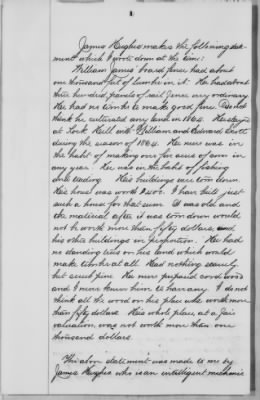 James Hughes makes the following state-
ment which I wrote down at the time:
William James' board fence had about
one thousand feet of lumber in it. He had about
three hundred panels of rail fence, very ordinary
He had no timber to make good fence. Do not
think he cultivated any land in 1864. He stayed
at Fork Hill with William and Edward Scott
during the season of 1864. He never was in
the habit of making over acres of corn in
any year. He was in the habit of fishing
and His buildings were torn down
His house was worth $400. I have built just
such a house for that sum. It was old and
the material after it was torn down would
not be worth more than fifty dollars, and
his other buildings in proportion. He had
no standing trees on his land which would
make timber at all. Had nothing scarcely
but scrub pine. He never prepared cord wood
and I never knew him to have any. I do not
think all the wood on his place was worth more
than fifty dollars. His whole place, at a fair
valuation, was not worth more than one
thousand dollars
This above statement was made to me by
James Hughes who is an intelligent mechanic